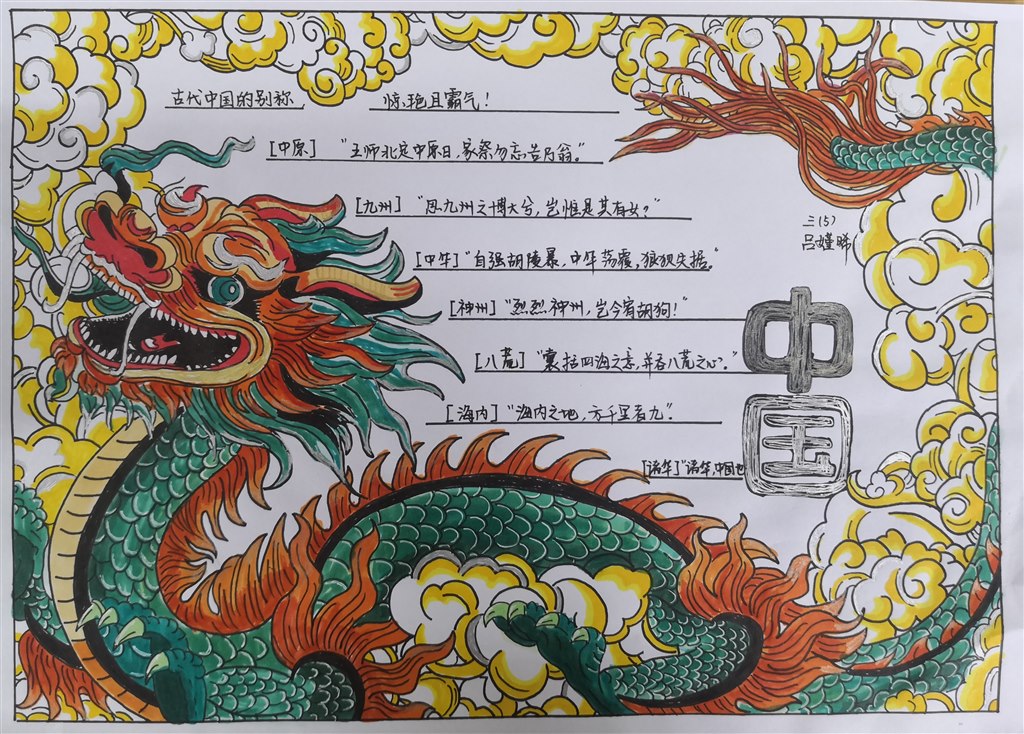 古代中国的别称,
惊艳且霸气!
[中原] “王师北定中原日,家祭勿忘告乃翁。”
[九州] “思九州之博大兮,岂惟是其有女?”
三(5)
吕
晞
[中华] “自强胡陵暴,中华荡覆,狼狈失据。”
[神州] “烈烈神州,岂今宥胡狗!”
[八荒] “囊括四海之意,并吞八荒之心。”
[海内] “海内之地,方千里者九”.
[诸华] “诸华,中国也
中国